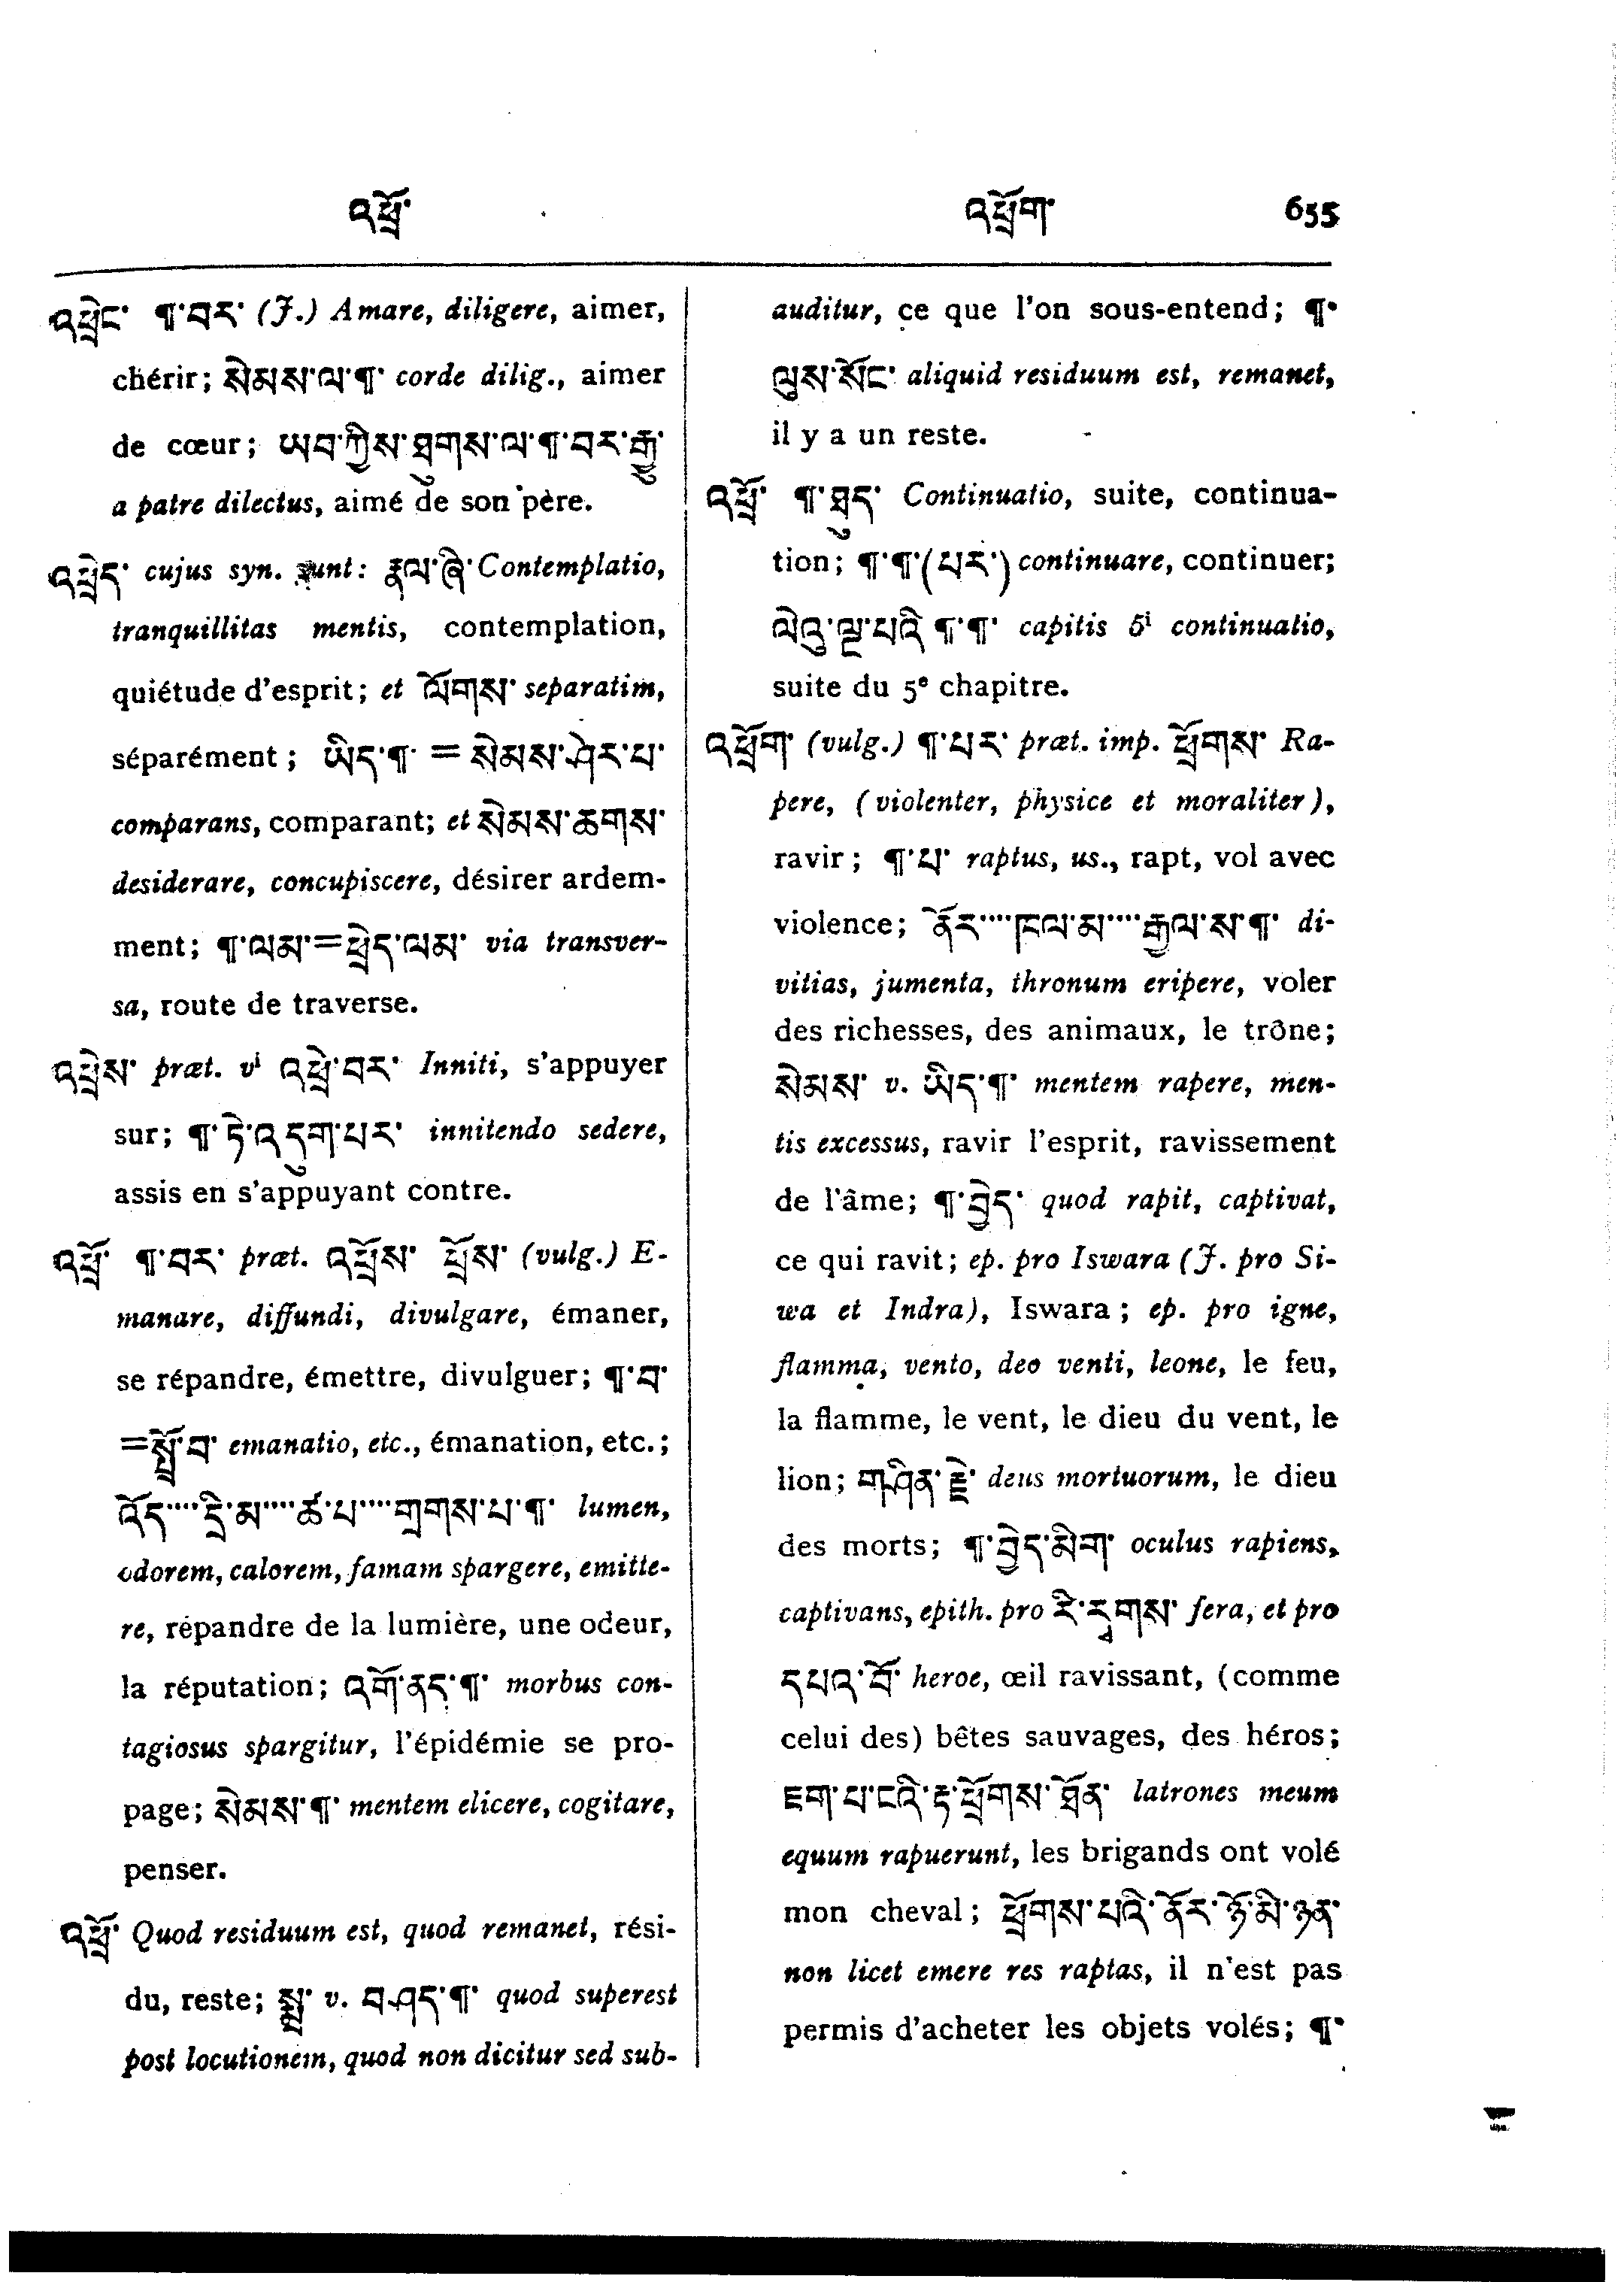 འཕྲོ་ འཕྲོག་ 655
འཕྲེང་ ¶་བར་ (J.) Amare, diligere, aimer,
chérir; སེམས་ལ་¶་ corde dilig., aimer
de cœur; ཡབ་ཀྱིས་ཐུགས་ལ་¶་བར་རྒྱུ་
a patre dilectus, aimé de son père.
འཕྲེད་ cujus syn. sunt: རྣལ་ཞི་ Contemplatio,
tranquillitas mentis, contemplation,
quiétude d'esprit; et ལོགས་ separatim,
séparément; ཡིད་¶་ = སེམས་ཤེར་པ་
comparans, comparant; et སེམས་ཆགས་
desiderare, concupiscere, désirer ardem-
ment; ¶་ལམ་=ཕྲེད་ལམ་ via transver-
sa, route de traverse.
འཕྲེས་ præt. vⁱ འཕྲེ་བར་ Inniti, s'appuyer
sur; ¶་ཏེ་འདུག་པར་ innitendo sedere,
assis en s'appuyant contre.
འཕྲོ་ ¶་བར་ præt. འཕྲོས་ ཕྲོས་ (vulg.) E-
manare, diffundi, divulgare, émaner,
se répandre, émettre, divulguer; ¶་བ་
=སྤྲོ་བ་ emanatio, etc., émanation, etc.;
འོད་····དྲི་མ་····ཚ་པ་····གྲགས་པ་¶་ lumen,
odorem, calorem, famam spargere, emitte-
re, répandre de la lumière, une odeur,
la réputation; འགོ་ནད་¶་ morbus con-
tagiosus spargitur, l'épidémie se pro-
page; སེམས་¶་ mentem elicere, cogitare,
penser.
འཕྲོ་ Quod residuum est, quod remanet, rési-
du, reste; སྨྲ་ v. བཤད་¶་ quod superest
post locutionem, quod non dicitur sed sub-
auditur, ce que l'on sous-entend; ¶་
ལུས་སོང་ aliquid residuum est, remanet,
il y a un reste.
འཕྲོ་ ¶་ཐུད་ Continuatio, suite, continua-
tion; ¶་¶་(པར་) continuare, continuer;
ལེའུ་ལྔ་པའི་¶་¶་ capitis 5ⁱ continuatio,
suite du 5ᵉ chapitre.
འཕྲོག་ (vulg.) ¶་པར་ præt. imp. ཕྲོགས་ Ra-
pere, (violenter, physice et moraliter),
ravir; ¶་པ་ raptus, us., rapt, vol avec
violence; ནོར་····ཁལ་མ་····རྒྱལ་ས་¶་ di-
vitias, jumenta, thronum eripere, voler
des richesses, des animaux, le trône;
སེམས་ v. ཡིད་¶་ mentem rapere, men-
tis excessus, ravir l'esprit, ravissement
de l'âme; ¶་བྱེད་ quod rapit, captivat,
ce qui ravit; ep. pro Iswara (J. pro Si-
wa et Indra), Iswara; ep. pro igne,
flamma, vento, deo venti, leone, le feu,
la flamme, le vent, le dieu du vent, le
lion; གཤིན་རྗེ་ deus mortuorum, le dieu
des morts; ¶་བྱེད་མིག་ oculus rapiens,
captivans, epith. pro རི་དྭགས་ fera, et pro
དཔའ་བོ་ heroe, œil ravissant, (comme
celui des) bêtes sauvages, des héros;
ཇག་པ་ངའི་རྟ་ཕྲོགས་ཐོན་ latrones meum
equum rapuerunt, les brigands ont volé
mon cheval; ཕྲོགས་པའི་ནོར་ཉོ་མི་ཉན་
non licet emere res raptas, il n'est pas
permis d'acheter les objets volés; ¶་